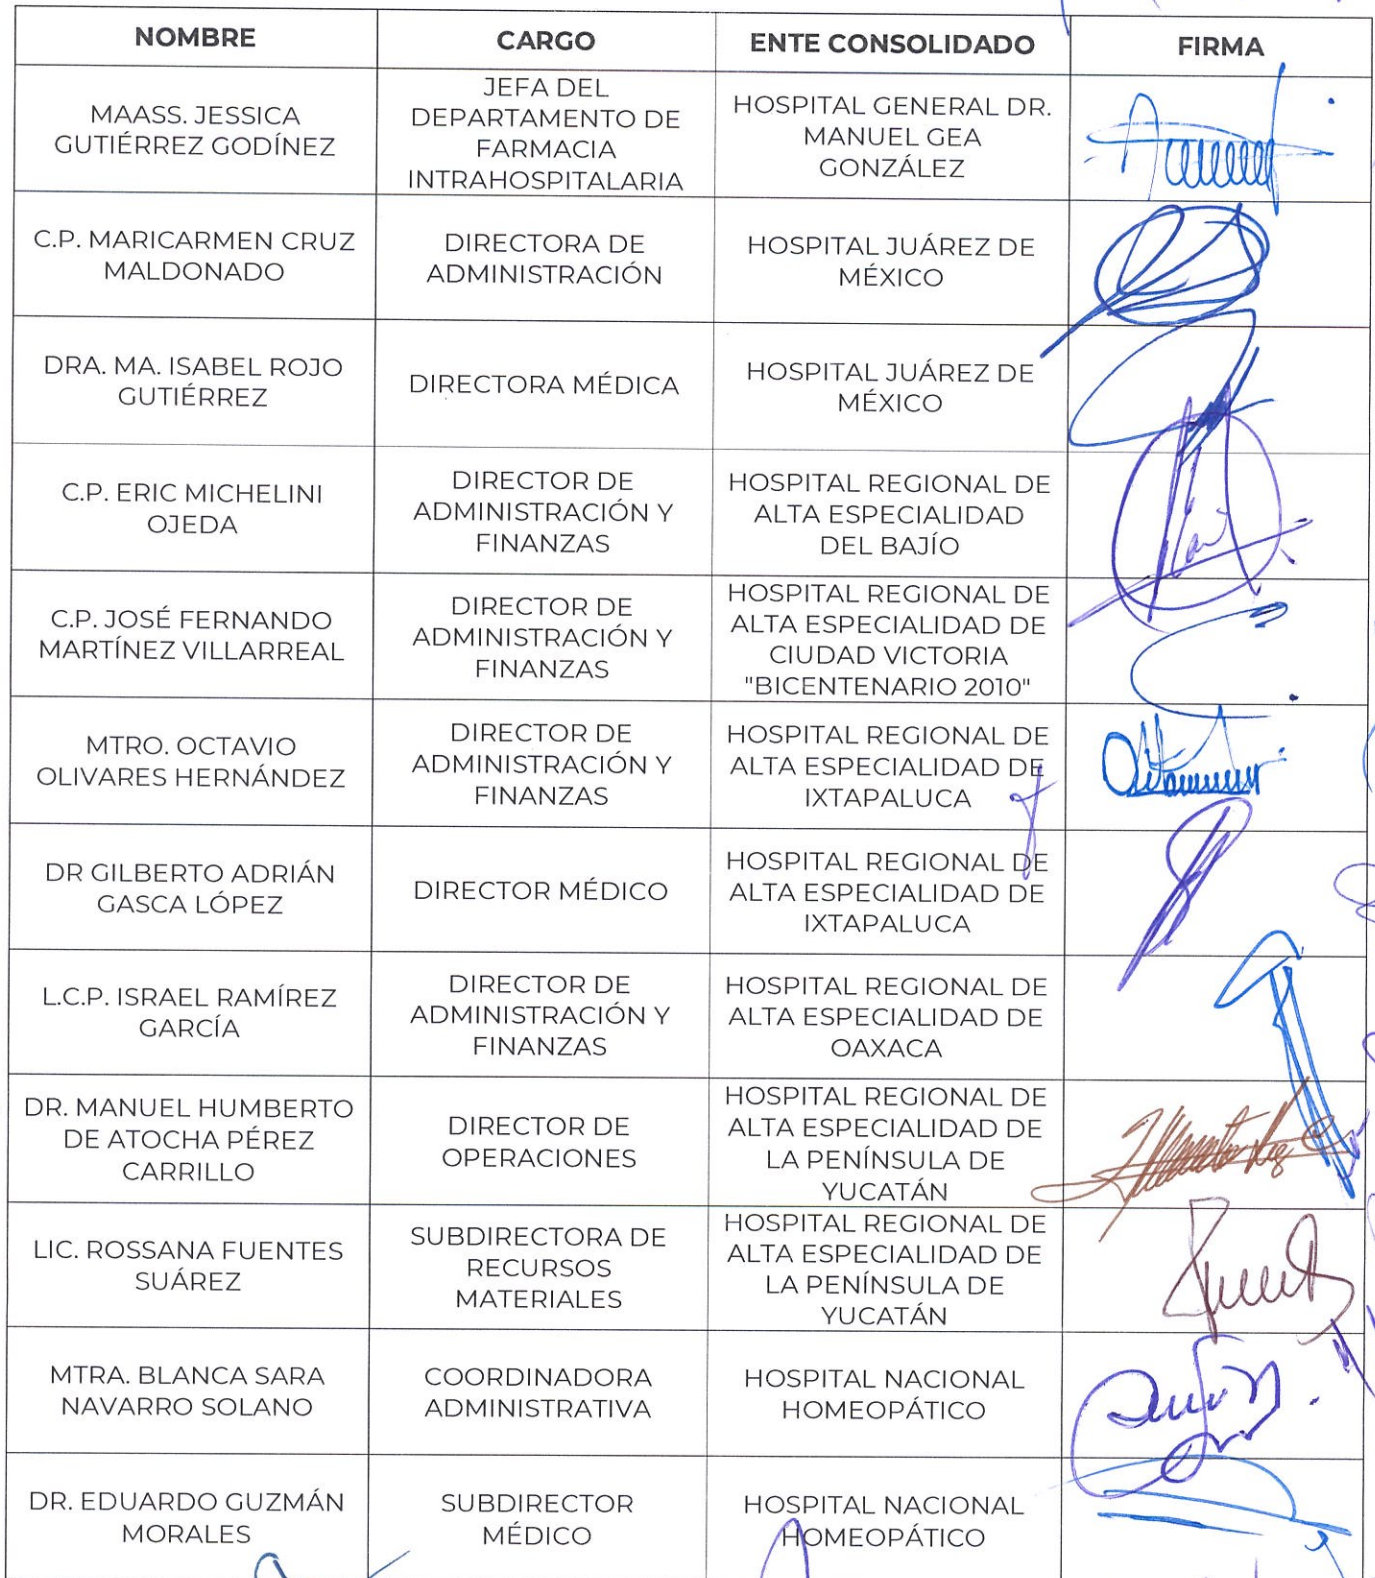 NOMBRE CARGO ENTE CONSOLIDADO FIRMA
MAASS. JESSICA
GUTIÉRREZ GODÍNEZ
JEFA DEL
DEPARTAMENTO DE
FARMACIA
INTRAHOSPITALARIA
HOSPITAL GENERAL DR.
MANUEL GEA
GONZÁLEZ
C.P. MARICARMEN CRUZ
MALDONADO
DIRECTORA DE
ADMINISTRACIÓN
HOSPITAL JUÁREZ DE
MÉXICO
DRA. MA. ISABEL ROJO
GUTIÉRREZ
DIRECTORA MÉDICA
HOSPITAL JUÁREZ DE
MÉXICO
C.P. ERIC MICHELINI
OJEDA
DIRECTOR DE
ADMINISTRACIÓN Y
FINANZAS
HOSPITAL REGIONAL DE
ALTA ESPECIALIDAD
DEL BAJÍO
C.P. JOSÉ FERNANDO
MARTÍNEZ VILLARREAL
DIRECTOR DE
ADMINISTRACIÓN Y
FINANZAS
HOSPITAL REGIONAL DE
ALTA ESPECIALIDAD DE
CIUDAD VICTORIA
"BICENTENARIO 2010"
MTRO. OCTAVIO
OLIVARES HERNÁNDEZ
DIRECTOR DE
ADMINISTRACIÓN Y
FINANZAS
HOSPITAL REGIONAL DE
ALTA ESPECIALIDAD DE
IXTAPALUCA
DR GILBERTO ADRIÁN
GASCA LÓPEZ
DIRECTOR MÉDICO
HOSPITAL REGIONAL DE
ALTA ESPECIALIDAD DE
IXTAPALUCA
L.C.P. ISRAEL RAMÍREZ
GARCÍA
DIRECTOR DE
ADMINISTRACIÓN Y
FINANZAS
HOSPITAL REGIONAL DE
ALTA ESPECIALIDAD DE
OAXACA
DR. MANUEL HUMBERTO
DE ATOCHA PÉREZ
CARRILLO
DIRECTOR DE
OPERACIONES
HOSPITAL REGIONAL DE
ALTA ESPECIALIDAD DE
LA PENÍNSULA DE
YUCATÁN
LIC. ROSSANA FUENTES
SUÁREZ
SUBDIRECTORA DE
RECURSOS
MATERIALES
HOSPITAL REGIONAL DE
ALTA ESPECIALIDAD DE
LA PENÍNSULA DE
YUCATÁN
MTRA. BLANCA SARA
NAVARRO SOLANO
COORDINADORA
ADMINISTRATIVA
HOSPITAL NACIONAL
HOMEOPÁTICO
DR. EDUARDO GUZMÁN
MORALES
SUBDIRECTOR
MÉDICO
HOSPITAL NACIONAL
HOMEOPÁTICO